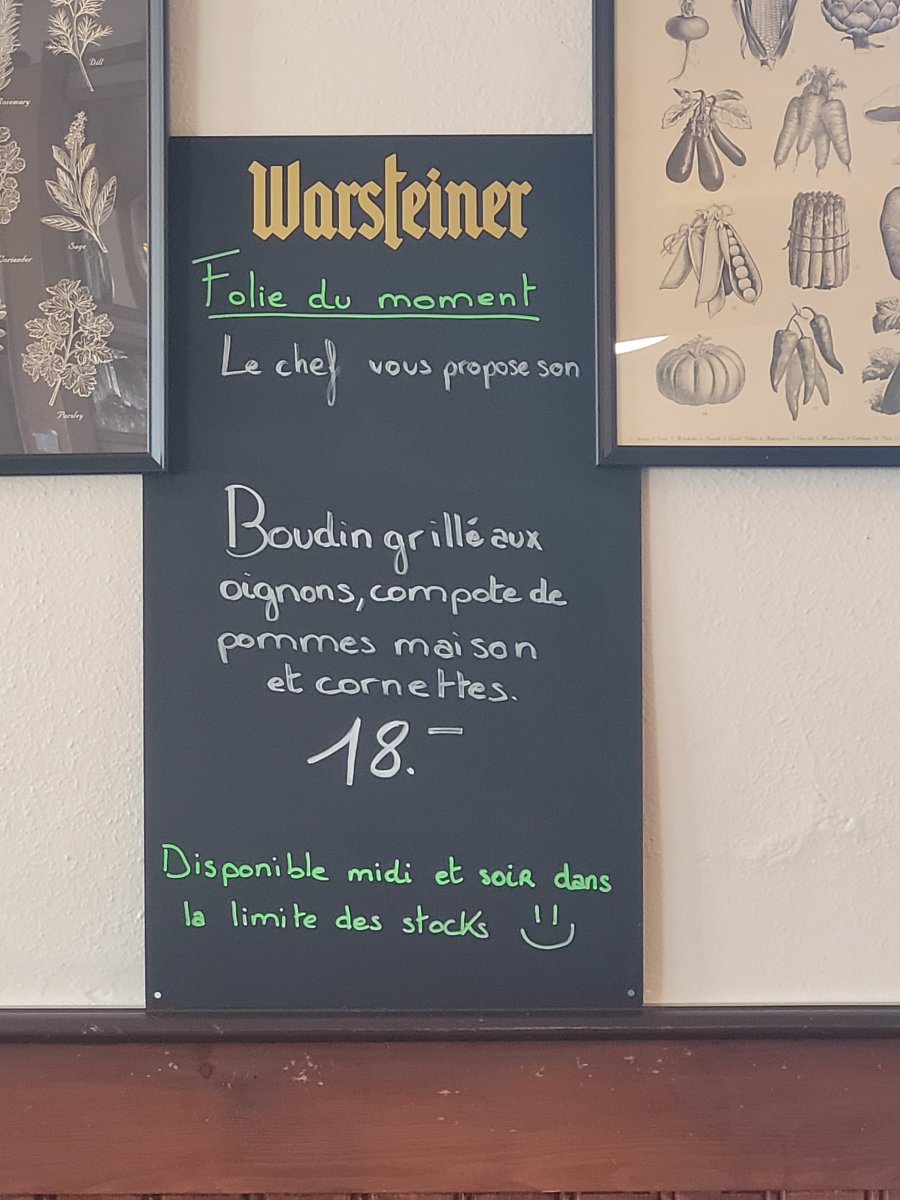 Dill
Rosemary
Sage
Coriander
Parsley
Warsteiner
Folie du moment
Le chef vous propose son
Boudin grillé aux
oignons, compote de
pommes maison
et cornettes.
18.-
Disponible midi et soir dans
la limite des stocks